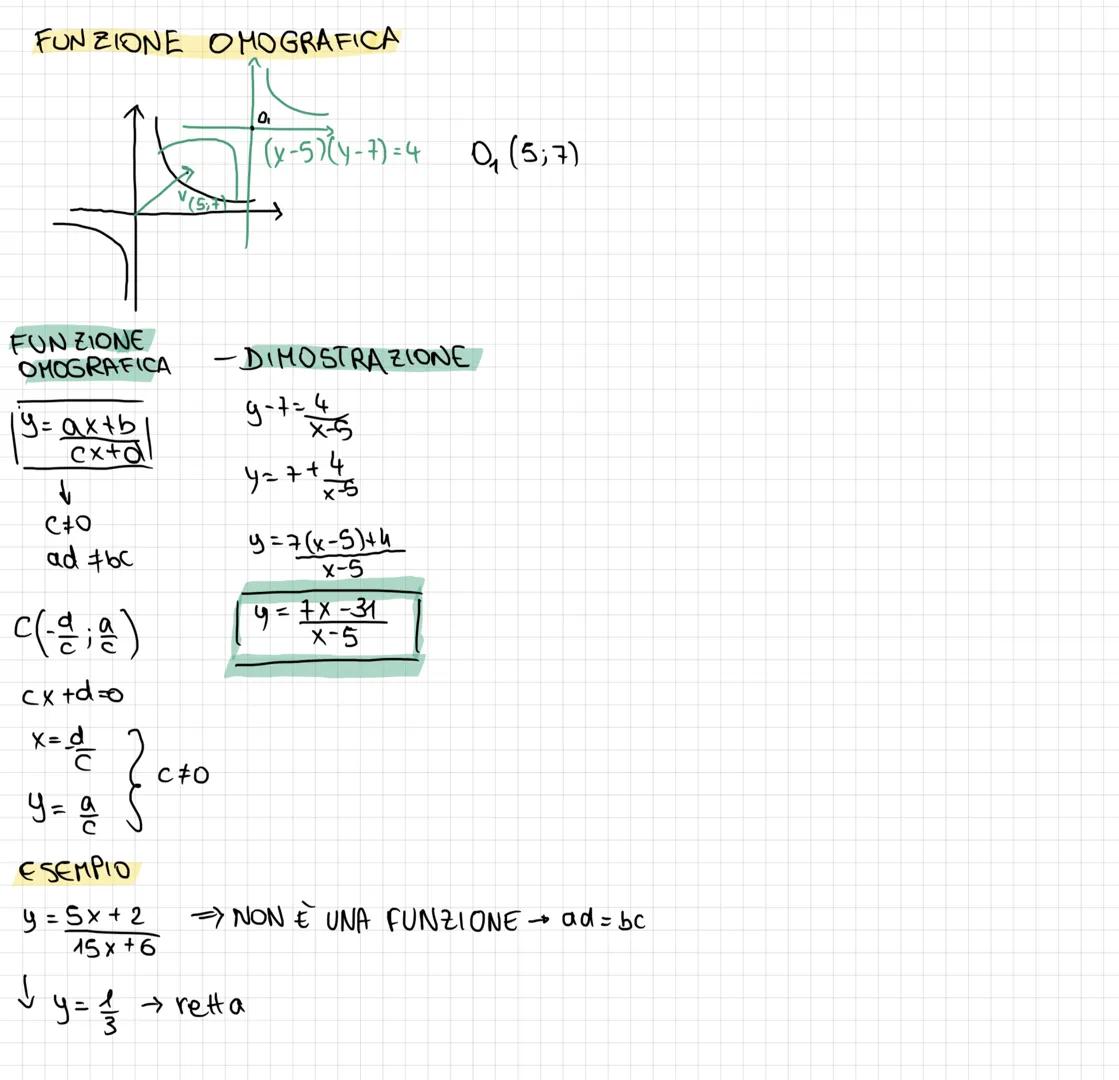 FUNZIONE OMOGRAFICA
O₁
(x-5)(y-7)=4
O₁ (5;7)
v(5;7)
FUNZIONE
OMOGRAFICA
y = (ax+b)/(cx+d)
↓
c≠0
ad ≠bc
C(-d/c ; a/c)
cx+d=0
x=-d/c
y= a/c
} c≠0
- DIMOSTRAZIONE
y-7= 4/(x-5)
y= 7+ 4/(x-5)
y = (7(x-5)+4)/(x-5)
y = (7x-31)/(x-5)
ESEMPIO
y = (5x+2)/(15x+6) ⇒ NON È UNA FUNZIONE → ad = bc
↓ y= 1/3 → retta